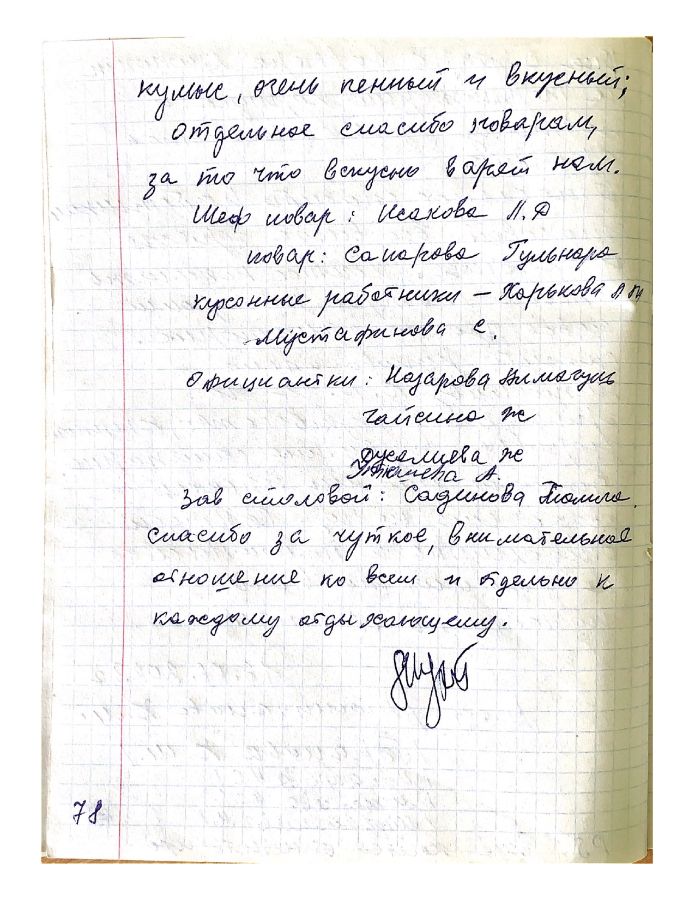 кумыс, очень пенный и вкусный;
отдельное спасибо поварам,
за то что вскусно варят нам.
Шеф повар: Исакова Л.Д
повар: Сапарова Гульнара
кухонные работники – Харькова А
Мустафинова С.
Официантки: Назарова
Гайсина Ж
Дуселиева Ж
А.
Зав столовой: Садинова
спасибо за чуткое, внимательное
отношение ко всем и отдельно к
каждому отдыхающему.
78